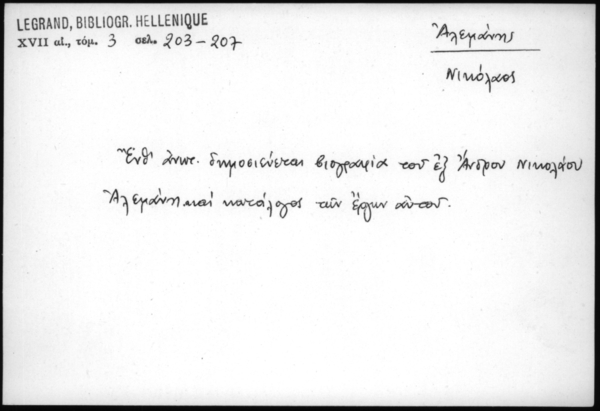 LEGRAND, BIBLIOGR. HELLENIQUE
XVII αἰ., τόμ. 3 σελ. 203-207
Ἀλεμάνης
Νικόλαος
Ἔνθ' ἀνωτ. δημοσιεύεται βιογραφία τοῦ ἐξ Ἄνδρου Νικολάου
Ἀλεμάνη καὶ κατάλογος τῶν ἔργων αὐτοῦ.